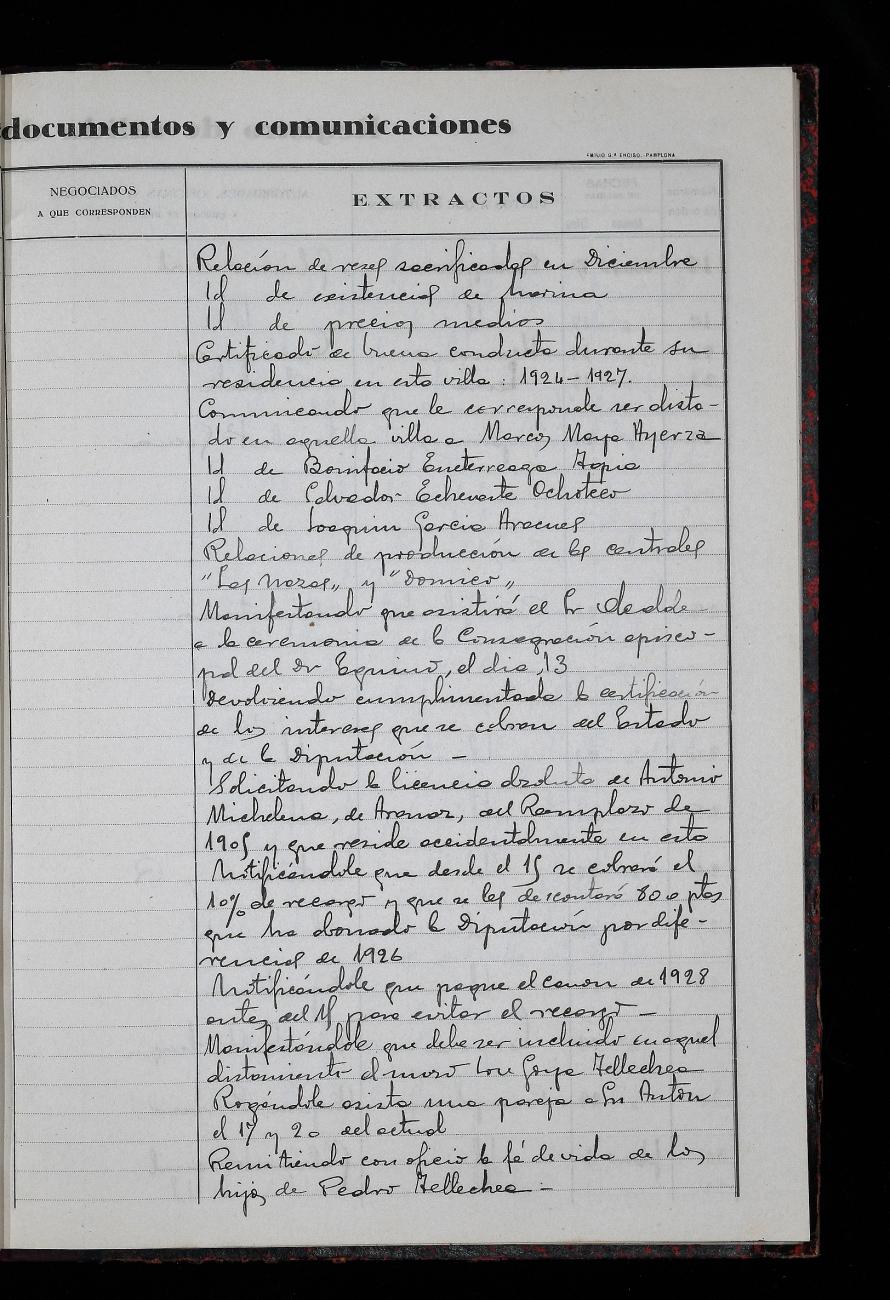 documentos y comunicaciones
EMILIO G.ª ENCISO.-PAMPLONA
NEGOCIADOS
A QUE CORRESPONDEN
EXTRACTOS
Relación de reses sacrificadas en Diciembre
Id de existencias de harina
Id de precios medios
Certificado de buena conducta durante su
residencia en esta villa : 1924-1927.
Comunicando que le corresponde ser alista-
do en aquella villa a Marcos Maya Ayerza
Id de Bonifacio Eneterreaga Tapia
Id de Salvador Echeveste Ochoteco
Id de Joaquin Garcia Aracues
Relaciones de producción de las centrales
"Las Nazas" y "Domico"
Manifestando que asistirá el Sr Alcalde
a la ceremonia de la Consagración episco-
pal del Dr Eguino, el dia 13
Devolviendo cumplimentada la certificación
de los intereses que se cobran del Estado
y de la Diputación -
Solicitando la licencia absoluta de Antonio
Michelena, de Aranaz, del Remplazo de
1905 y que reside accidentalmente en esta
Notificándole que desde el 15 se cobrará el
10% de recargo y que se les descontará 800 ptas
que ha abonado la Diputación por dife-
rencias de 1926
Notificándole que pague el canon de 1928
antes del 15 para evitar el recargo -
Manifestándole que debe ser incluido en aquel
alistamiento el mozo José Goya Tellechea
Rogándole asista una pareja a Sn Anton
el 17 y 20 del actual
Remitiendo con oficio la fé de vida de los
hijos de Pedro Tellechea -